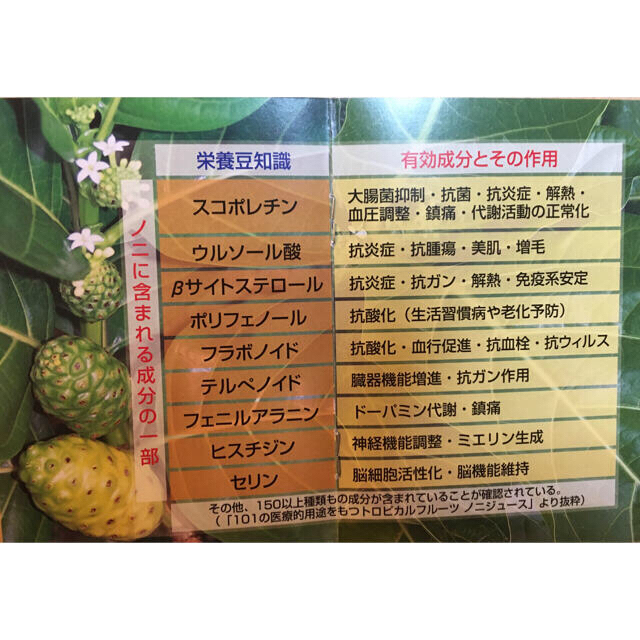 ノニに含まれる成分の一部
栄養豆知識
有効成分とその作用
スコポレチン
大腸菌抑制・抗菌・抗炎症・解熱・
血圧調整・鎮痛・代謝活動の正常化
ウルソール酸
抗炎症・抗腫瘍・美肌・増毛
βサイトステロール
抗炎症・抗ガン・解熱・免疫系安定
ポリフェノール
抗酸化（生活習慣病や老化予防）
フラボノイド
抗酸化・血行促進・抗血栓・抗ウィルス
テルペノイド
臓器機能増進・抗ガン作用
フェニルアラニン
ドーパミン代謝・鎮痛
ヒスチジン
神経機能調整・ミエリン生成
セリン
脳細胞活性化・脳機能維持
その他、150以上種類もの成分が含まれていることが確認されている。
（「101の医療的用途をもつトロピカルフルーツ ノニジュース」より抜粋）